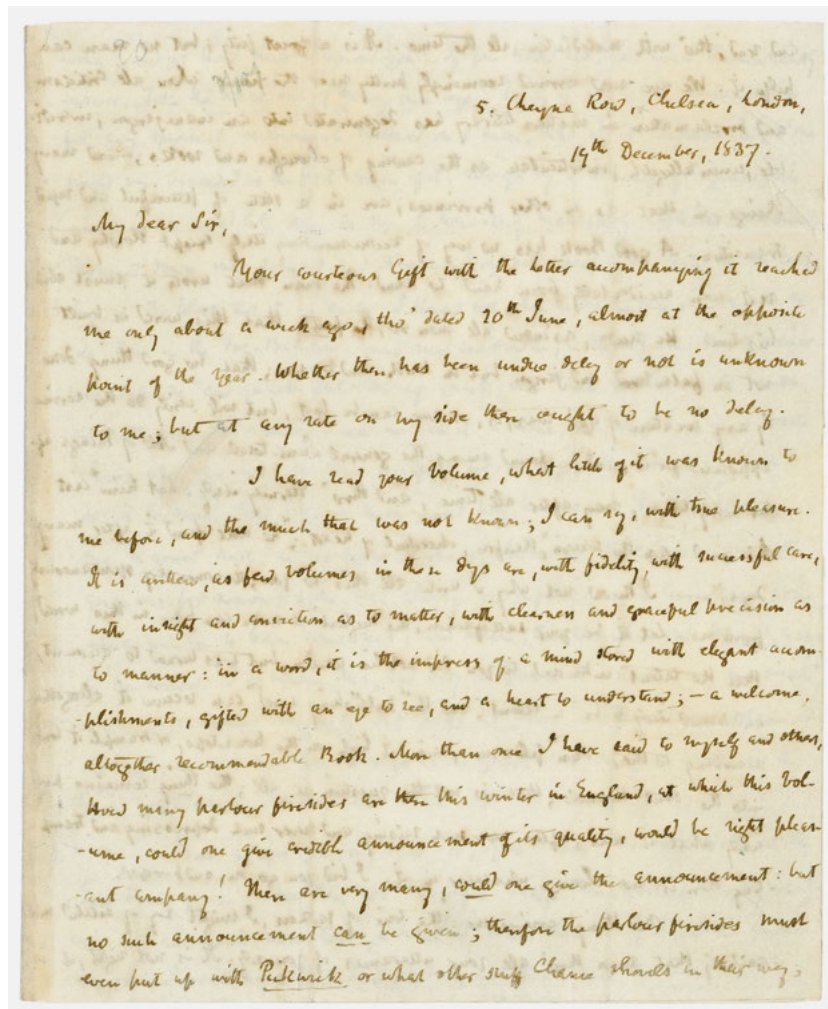 5. Cheyne Row, Chelsea, London,
19th December, 1837.
My dear Sir,
Your courteous Gift with the Letter accompanying it reached
me only about a week ago, tho' dated 20th June, almost at the opposite
point of the year. Whether there has been undue delay or not is unknown
to me; but at any rate on my side there ought to be no delay.
I have read your volume, what little of it was known to
me before, and the much that was not known; I can say, with true pleasure.
It is written, as few volumes in these days are, with fidelity, with successful care,
with insight and conviction as to matter, with clearness and graceful precision as
to manner: in a word, it is the impress of a mind stored with elegant accom-
-plishments, gifted with an eye to see, and a heart to understand; – a welcome,
altogether recommendable Book. More than once I have said to myself and others,
How many parlour firesides are there this winter in England, at which this Vol-
-ume, could one give credible announcement of its quality, would be right pleas-
-ant company! There are very many, could one give the announcement: but
no such announcement can be given; therefore the parlour firesides must
even put up with Pickwick or what other stuff Chance shovels in their way,